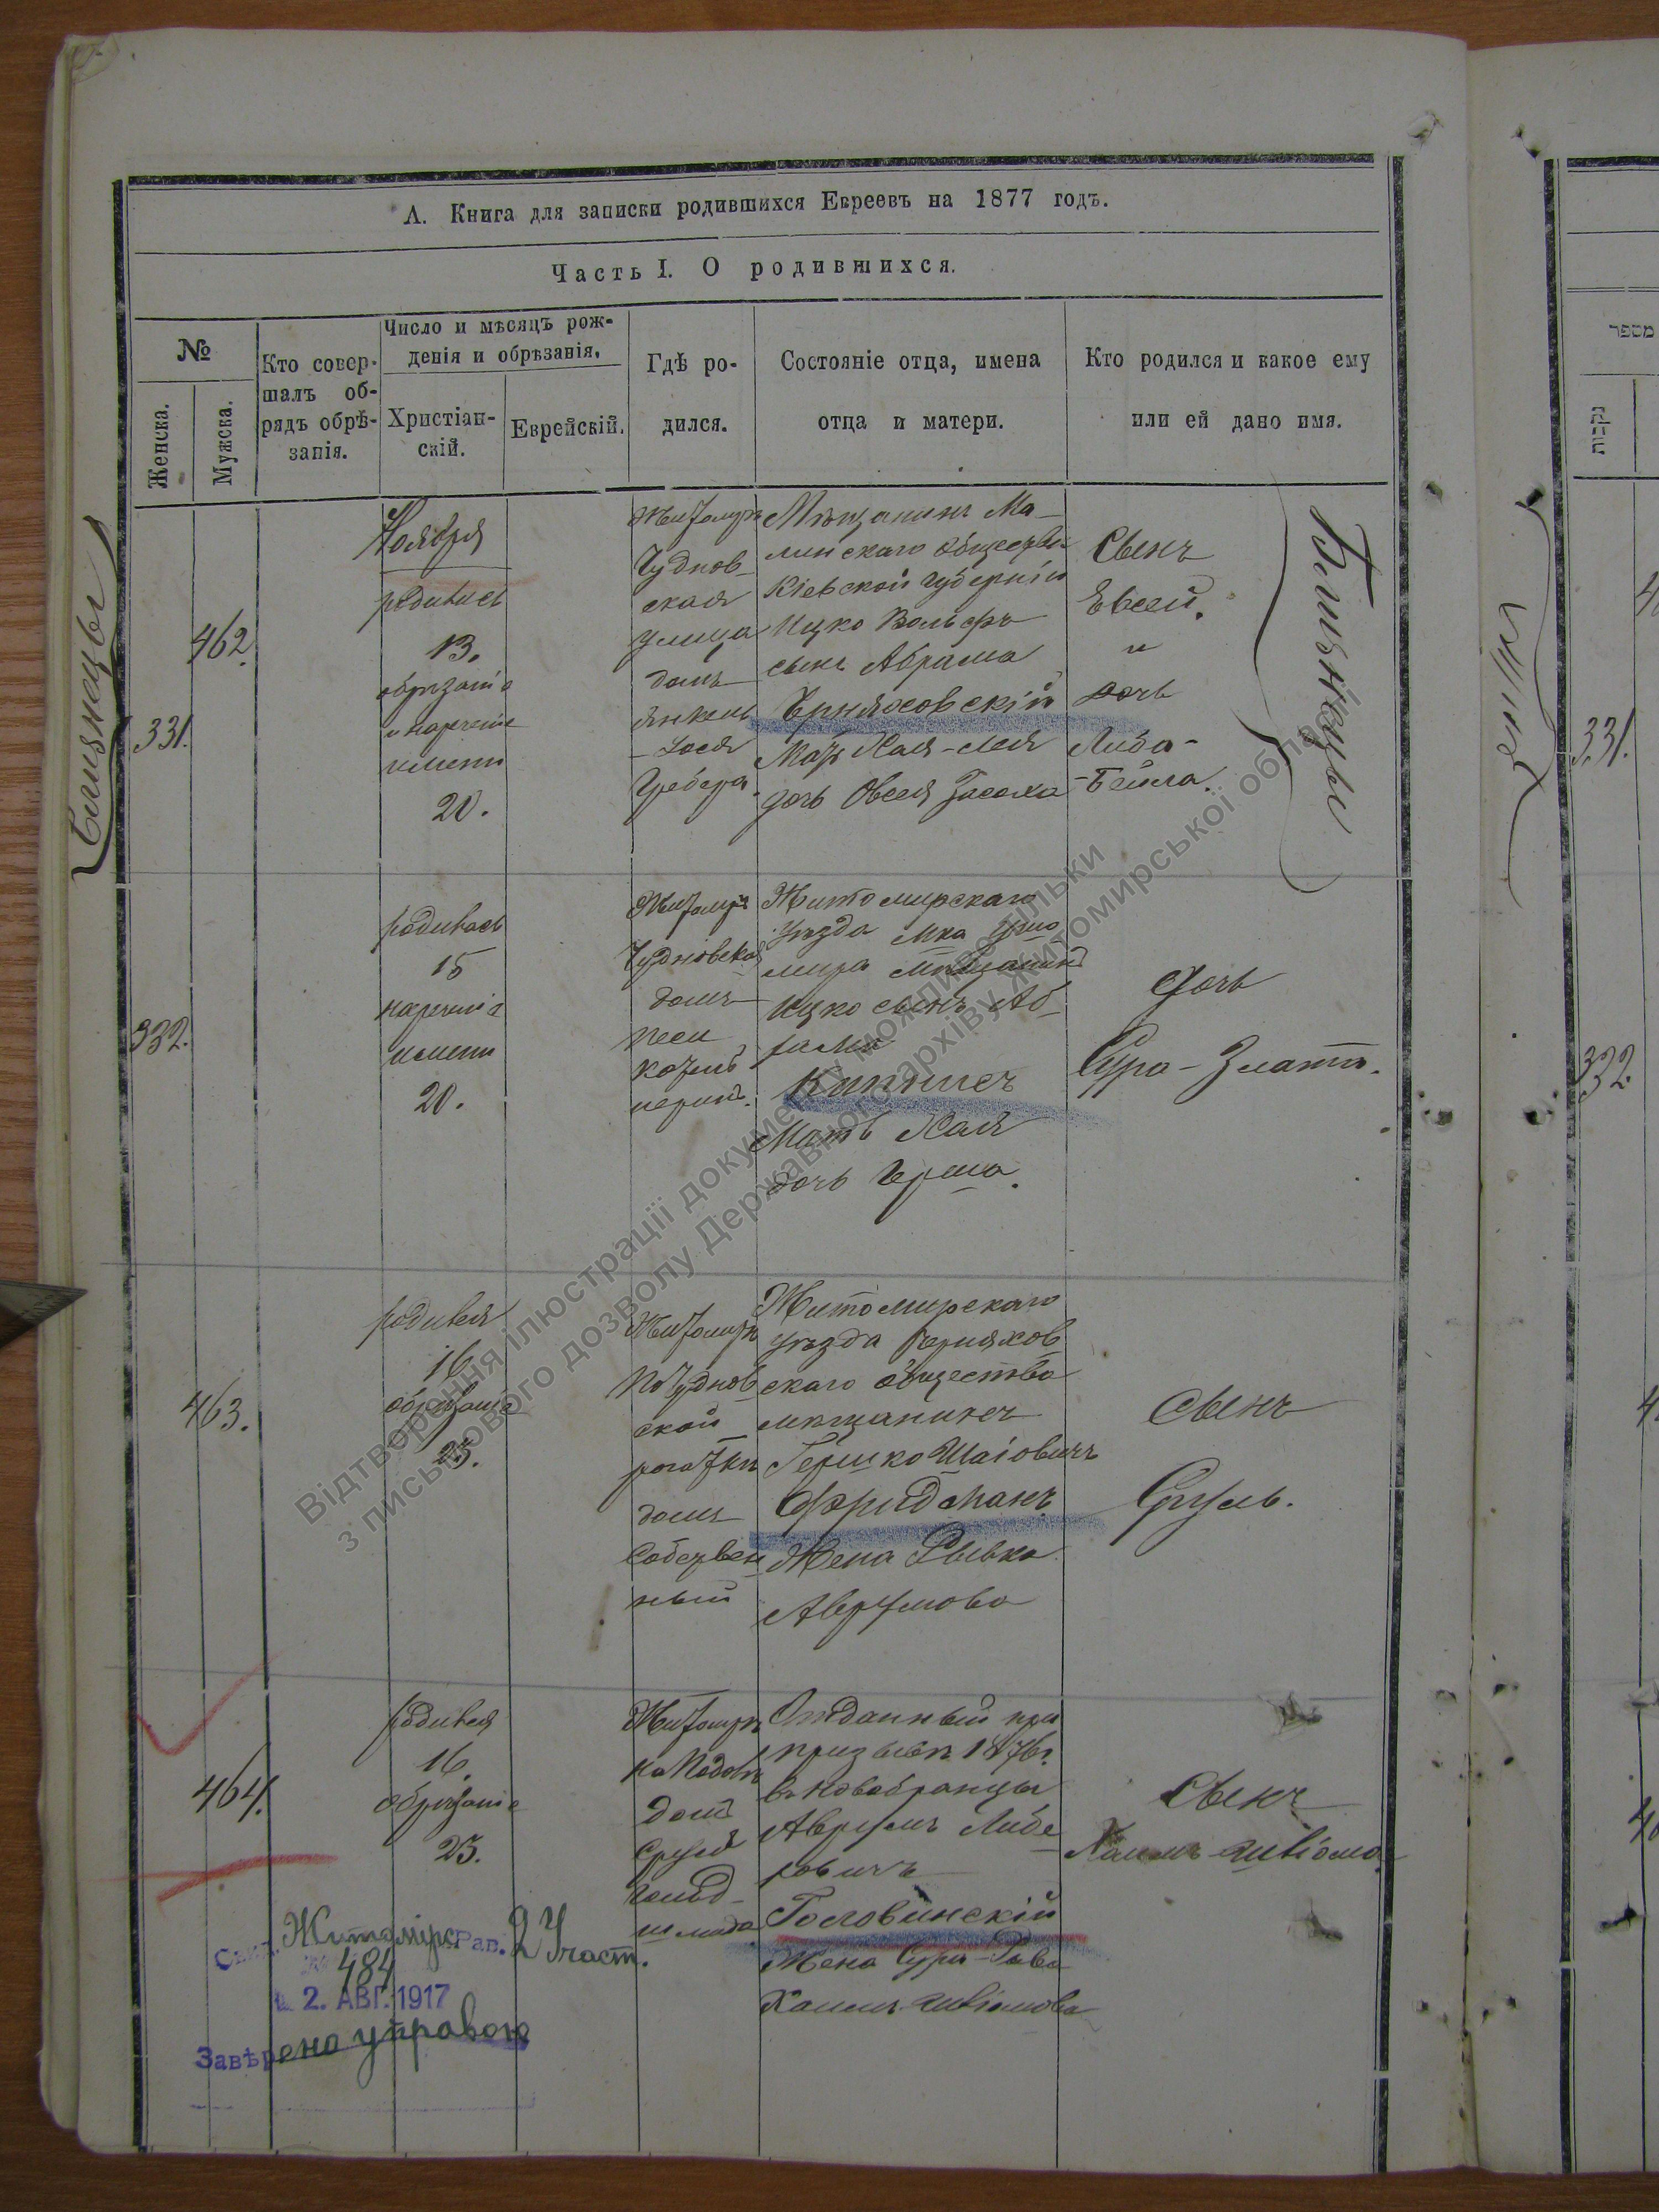 А. Книга для записки родившихся Евреевъ на 1877 годъ.
Часть I. О родившихся.
№
Женска.
Мужска.
Кто совер-
шалъ об-
рядъ обрѣ-
занія.
Число и мѣсяцъ рож-
денія и обрѣзанія.
Христіан-
скій.
Еврейскій.
Гдѣ ро-
дился.
Состояніе отца, имена
отца и матери.
Кто родился и какое ему
или ей дано имя.
Близнецы
331.
462.
Ноября
родились
13.
обрезаніе
и нареченіе
имени
20.
Житомиръ
Чуднов-
ская
улица
домъ
Янкель
Гребера.
Мѣщанинъ Ма-
линскаго общества
Кіевской губерніи
Ицко Вольфъ
сынъ Абрама
Черняховскій
Мать Хая-Лея
дочь Овсея
Сынъ
Евсей.
и
дочь
Либа-
-Бейла.
Близнецы
332.
родилась
15
нареченіе
имени
20.
Житомиръ
Чудновская
домъ
Песи
Житомирскаго
уѣзда мка
мира мѣщанинъ
Ицко сынъ Аб-
рама
Кипнисъ
Мать Хая
дочь Герша.
дочь
Сура-Злата.
463.
родился
16
обрезаніе
23.
Житомиръ
по Чуднов-
ской
рогаткѣ
домъ
Собствен-
ный
Житомирскаго
уѣзда Черняхов-
скаго общества
мѣщанинъ
Гершко Шаіовичъ
Фридманъ
Жена Рывка
Аврумова
Сынъ
Сруль.
464.
родился
16.
обрезаніе
23.
Житомиръ
на Подолѣ
домъ
Сруля
Гольд-
Отданный при
призывѣ 1876 г.
въ новобранцы
Аврумъ Либе-
ровичъ
Головинскій
Жена Сура-
Хаимъ-Шліомова
Сынъ
Хаимъ-Шліома.
Житомірс. Рап. 2 Участ.
484
2. АВГ. 1917
Завѣрено управою
מספר
נקבות
331.
332.
Відтворення ілюстрації документу можливо тільки
з письмового дозволу Державного архіву Житомирської області